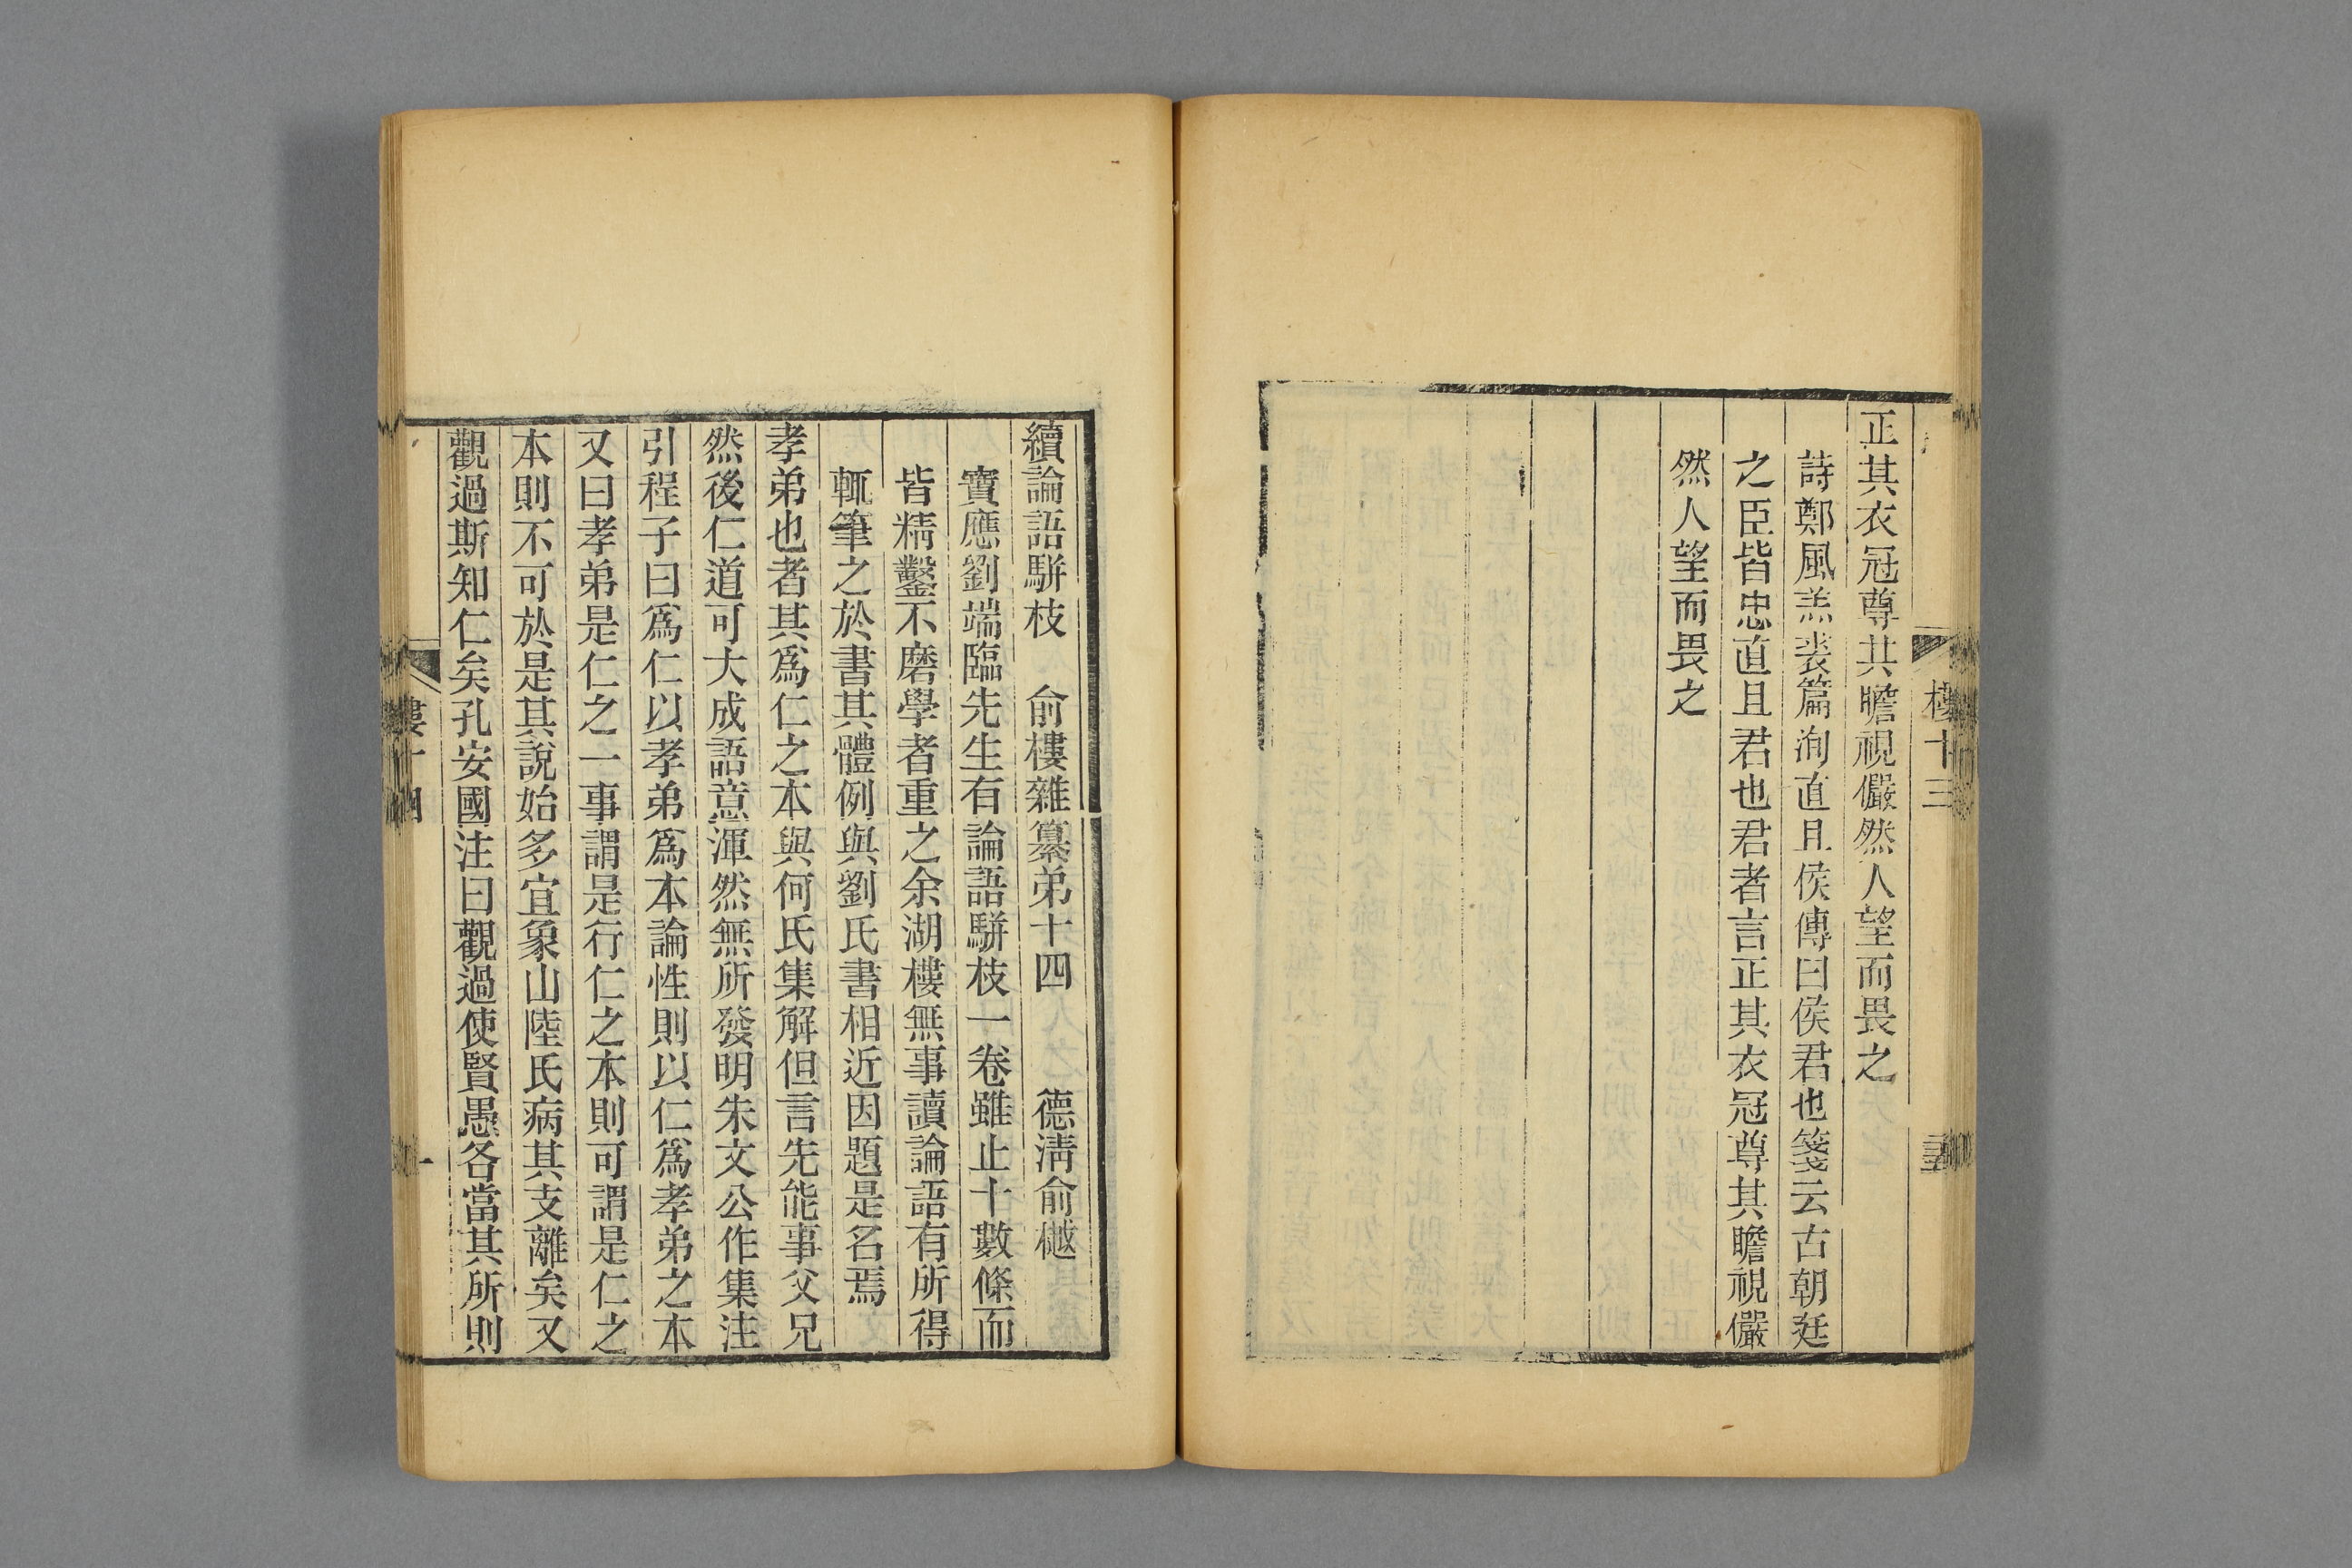 正其衣冠尊其瞻視儼然人望而畏之
詩鄭風羔裘篇洵直且侯傳曰侯君也箋云古朝廷
之臣皆忠直且君也君者言正其衣冠尊其瞻視儼
然人望而畏之
樓十三
續論語駢枝 俞樓雜纂弟十四 德清俞樾
寶應劉端臨先生有論語駢枝一卷雖止十數條而
皆精鑿不磨學者重之余湖樓無事讀論語有所得
輒筆之於書其體例與劉氏書相近因題是名焉
孝弟也者其爲仁之本與何氏集解但言先能事父兄
然後仁道可大成語意渾然無所發明朱文公作集注
引程子曰爲仁以孝弟爲本論性則以仁爲孝弟之本
又曰孝弟是仁之一事謂是行仁之本則可謂是仁之
本則不可於是其說始多宜象山陸氏病其支離矣又
觀過斯知仁矣孔安國注曰觀過使賢愚各當其所則
樓十四
一